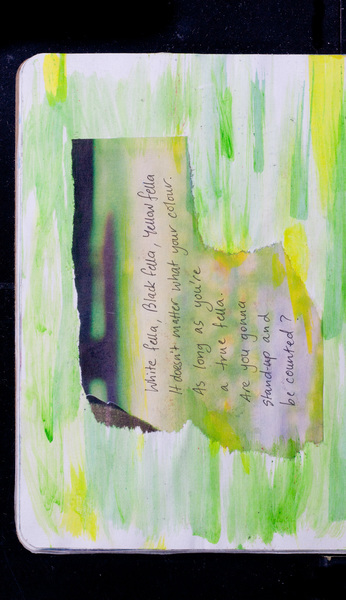 White fella, Black fella, Yellow fella
It doesn't matter what your colour.
As long as you're
a true fella.
Are you gonna
stand-up and
be counted?